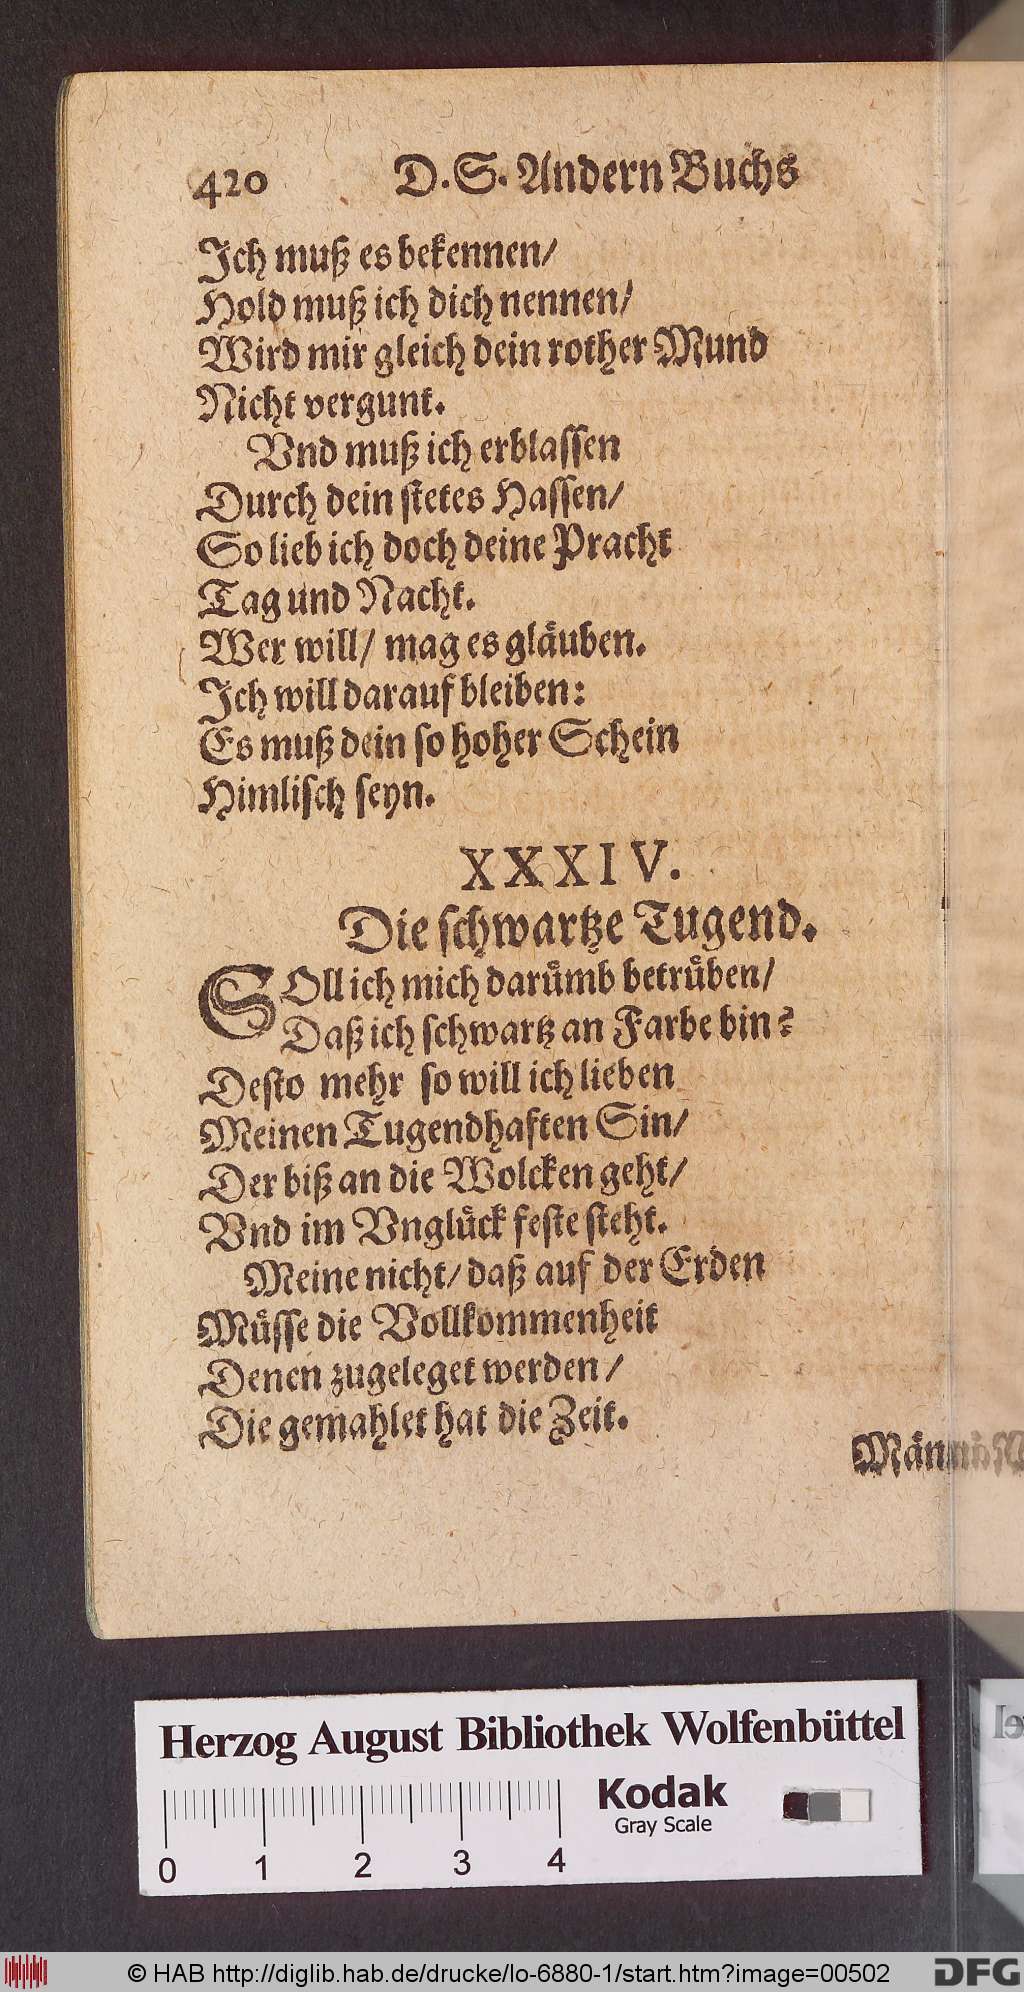 420 D. S. Andern Buchs
Ich muß es bekennen/
Hold muß ich dich nennen/
Wird mir gleich dein rother Mund
Nicht vergunt.
Vnd muß ich erblassen
Durch dein stetes Hassen/
So lieb ich doch deine Pracht
Tag und Nacht.
Wer will/ mag es gläuben.
Ich will darauf bleiben:
Es muß dein so hoher Schein
Himlisch seyn.
XXXIV.
Die schwartze Tugend.
SOll ich mich darümb betrüben/
Daß ich schwartz an Farbe bin?
Desto mehr so will ich lieben
Meinen Tugendhaften Sin/
Der biß an die Wolcken geht/
Vnd im Vnglück feste steht.
Meine nicht/ daß auf der Erden
Müsse die Vollkommenheit
Denen zugeleget werden/
Die gemahlet hat die Zeit.
Män
Herzog August Bibliothek Wolfenbüttel
Kodak
Gray Scale
0 1 2 3 4
© HAB http://diglib.hab.de/drucke/lo-6880-1/start.htm?image=00502
DFG